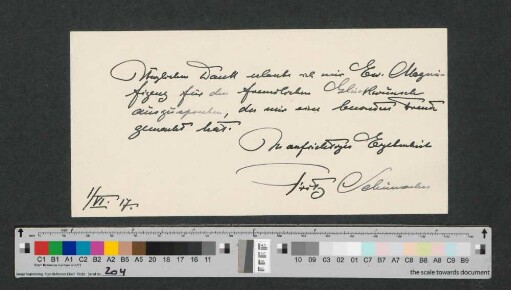 Herzlichen Dank erlaube ich mir Ew. Magni-
fizenz für den freundlichen Glückwunsch
auszusprechen, der mir eine besondere Freude
gemacht hat.
In aufrichtiger Ergebenheit
Fritz Schumacher
1/VI. 17.
C1 B1 A1 C2 B2 A2 B5 A5 20 18 17 16 11
10 09 03 02 01 C7 B7 A7 C8 B8 A8 C9 B9
204
the scale towards document